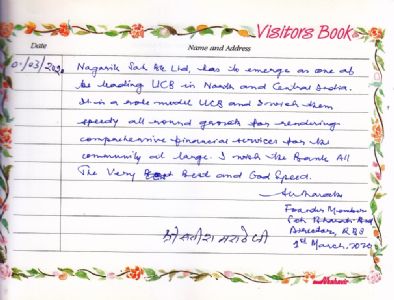 Visitors Book
Date Name and Address
01/03/2020 Nagarik Sah Bk Ltd, has to emerge as one of
the leading UCB in North and Central India.
It is a role model UCB and I wish them
speedy all round growth for rendering
comprehensive financial services for the
community at large. I wish the Bank All
The Very Best and God Speed.
Founder Member
Sah Bharati
Director, RBI
1st March, 2020
श्री सतीश मराठे जी